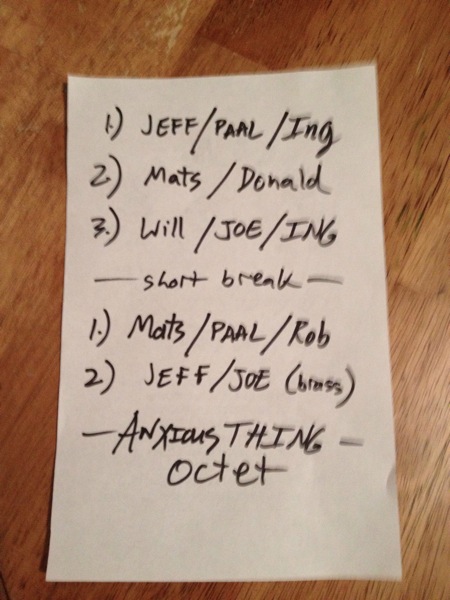 1.) JEFF/PAAL/Ing
2.) Mats/Donald
3.) Will/JOE/ING
— short break —
1.) Mats/PAAL/Rob
2) JEFF/JOE (brass)
— ANXIOUS THING —
octet